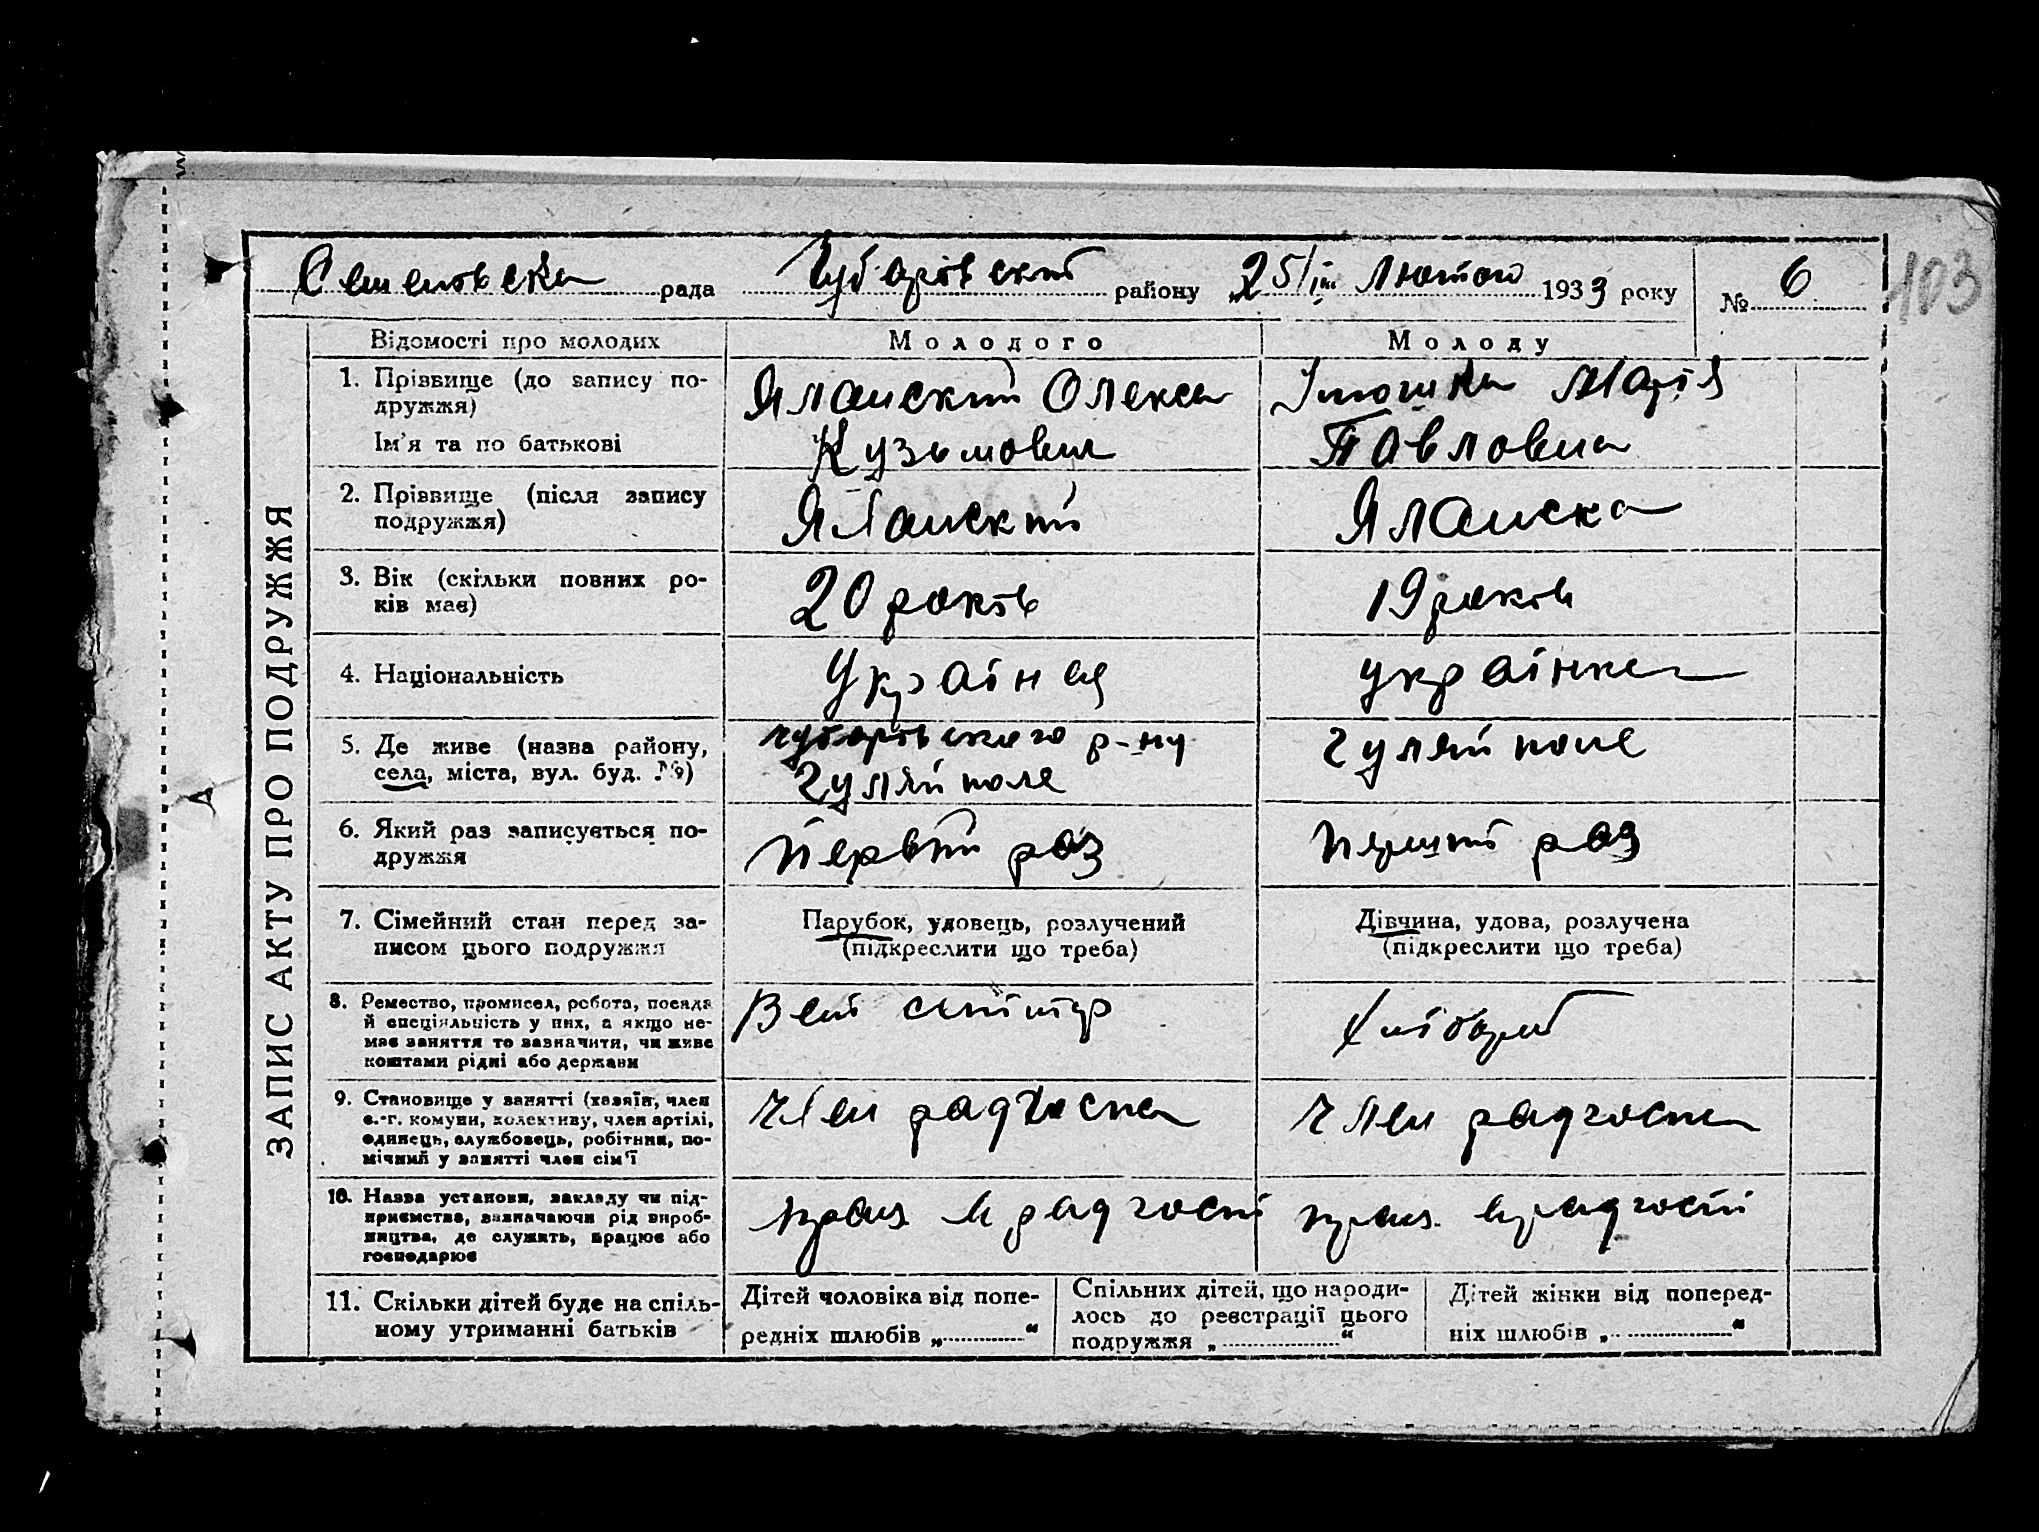 103
Семеновска рада Чубарівський району „25/ІІІ Лютого 1933 року № 6
ЗАПИС АКТУ ПРО ПОДРУЖЖЯ
Відомості про молодих Молодого Молоду
1. Прізвище (до запису по-
дружжя)
Ім'я та по батькові
Яланский Олекса
Кузьмович
Марія
Павловна
2. Прізвище (після запису
подружжя)
Яланский
Яланска
3. Вік (скільки повних ро-
ків має)
20 років
19 років
4. Національність
Українец
українка
5. Де живе (назва району,
села, міста, вул. буд. №)
чубарівського р-ну
Гуляй поле
Гуляй поле
6. Який раз записується по-
дружжя
Первий раз
Перший раз
7. Сімейний стан перед за-
писом цього подружжя
Парубок, удовець, розлучений
(підкреслити що треба)
Дівчина, удова, розлучена
(підкреслити що треба)
8. Ремество, промисел, робота, посада
й спеціяльність у них, а якщо не-
має заняття то зазначити, чи живе
коштами рідні або держави
Вей санітар
хлібороб
9. Становище у занятті (хазяїн, член
с.-г. комуни, колективу, член артілі,
одинець, службовець, робітник, по-
мічний у занятті член сім'ї
Член радгоспа
Член радгоспа
10. Назва установи, закладу чи під-
приємства, зазначаючи рід вироб-
ництва, де служить, працює або
господарює
прац. в радгоспі
прац. в радгоспі
11. Скільки дітей буде на спіль-
ному утриманні батьків
Дітей чоловіка від попе-
редніх шлюбів „ “
Спільних дітей, що народи-
лось до реєстрації цього
подружжя „ “
Дітей жінки від поперед-
ніх шлюбів „ “